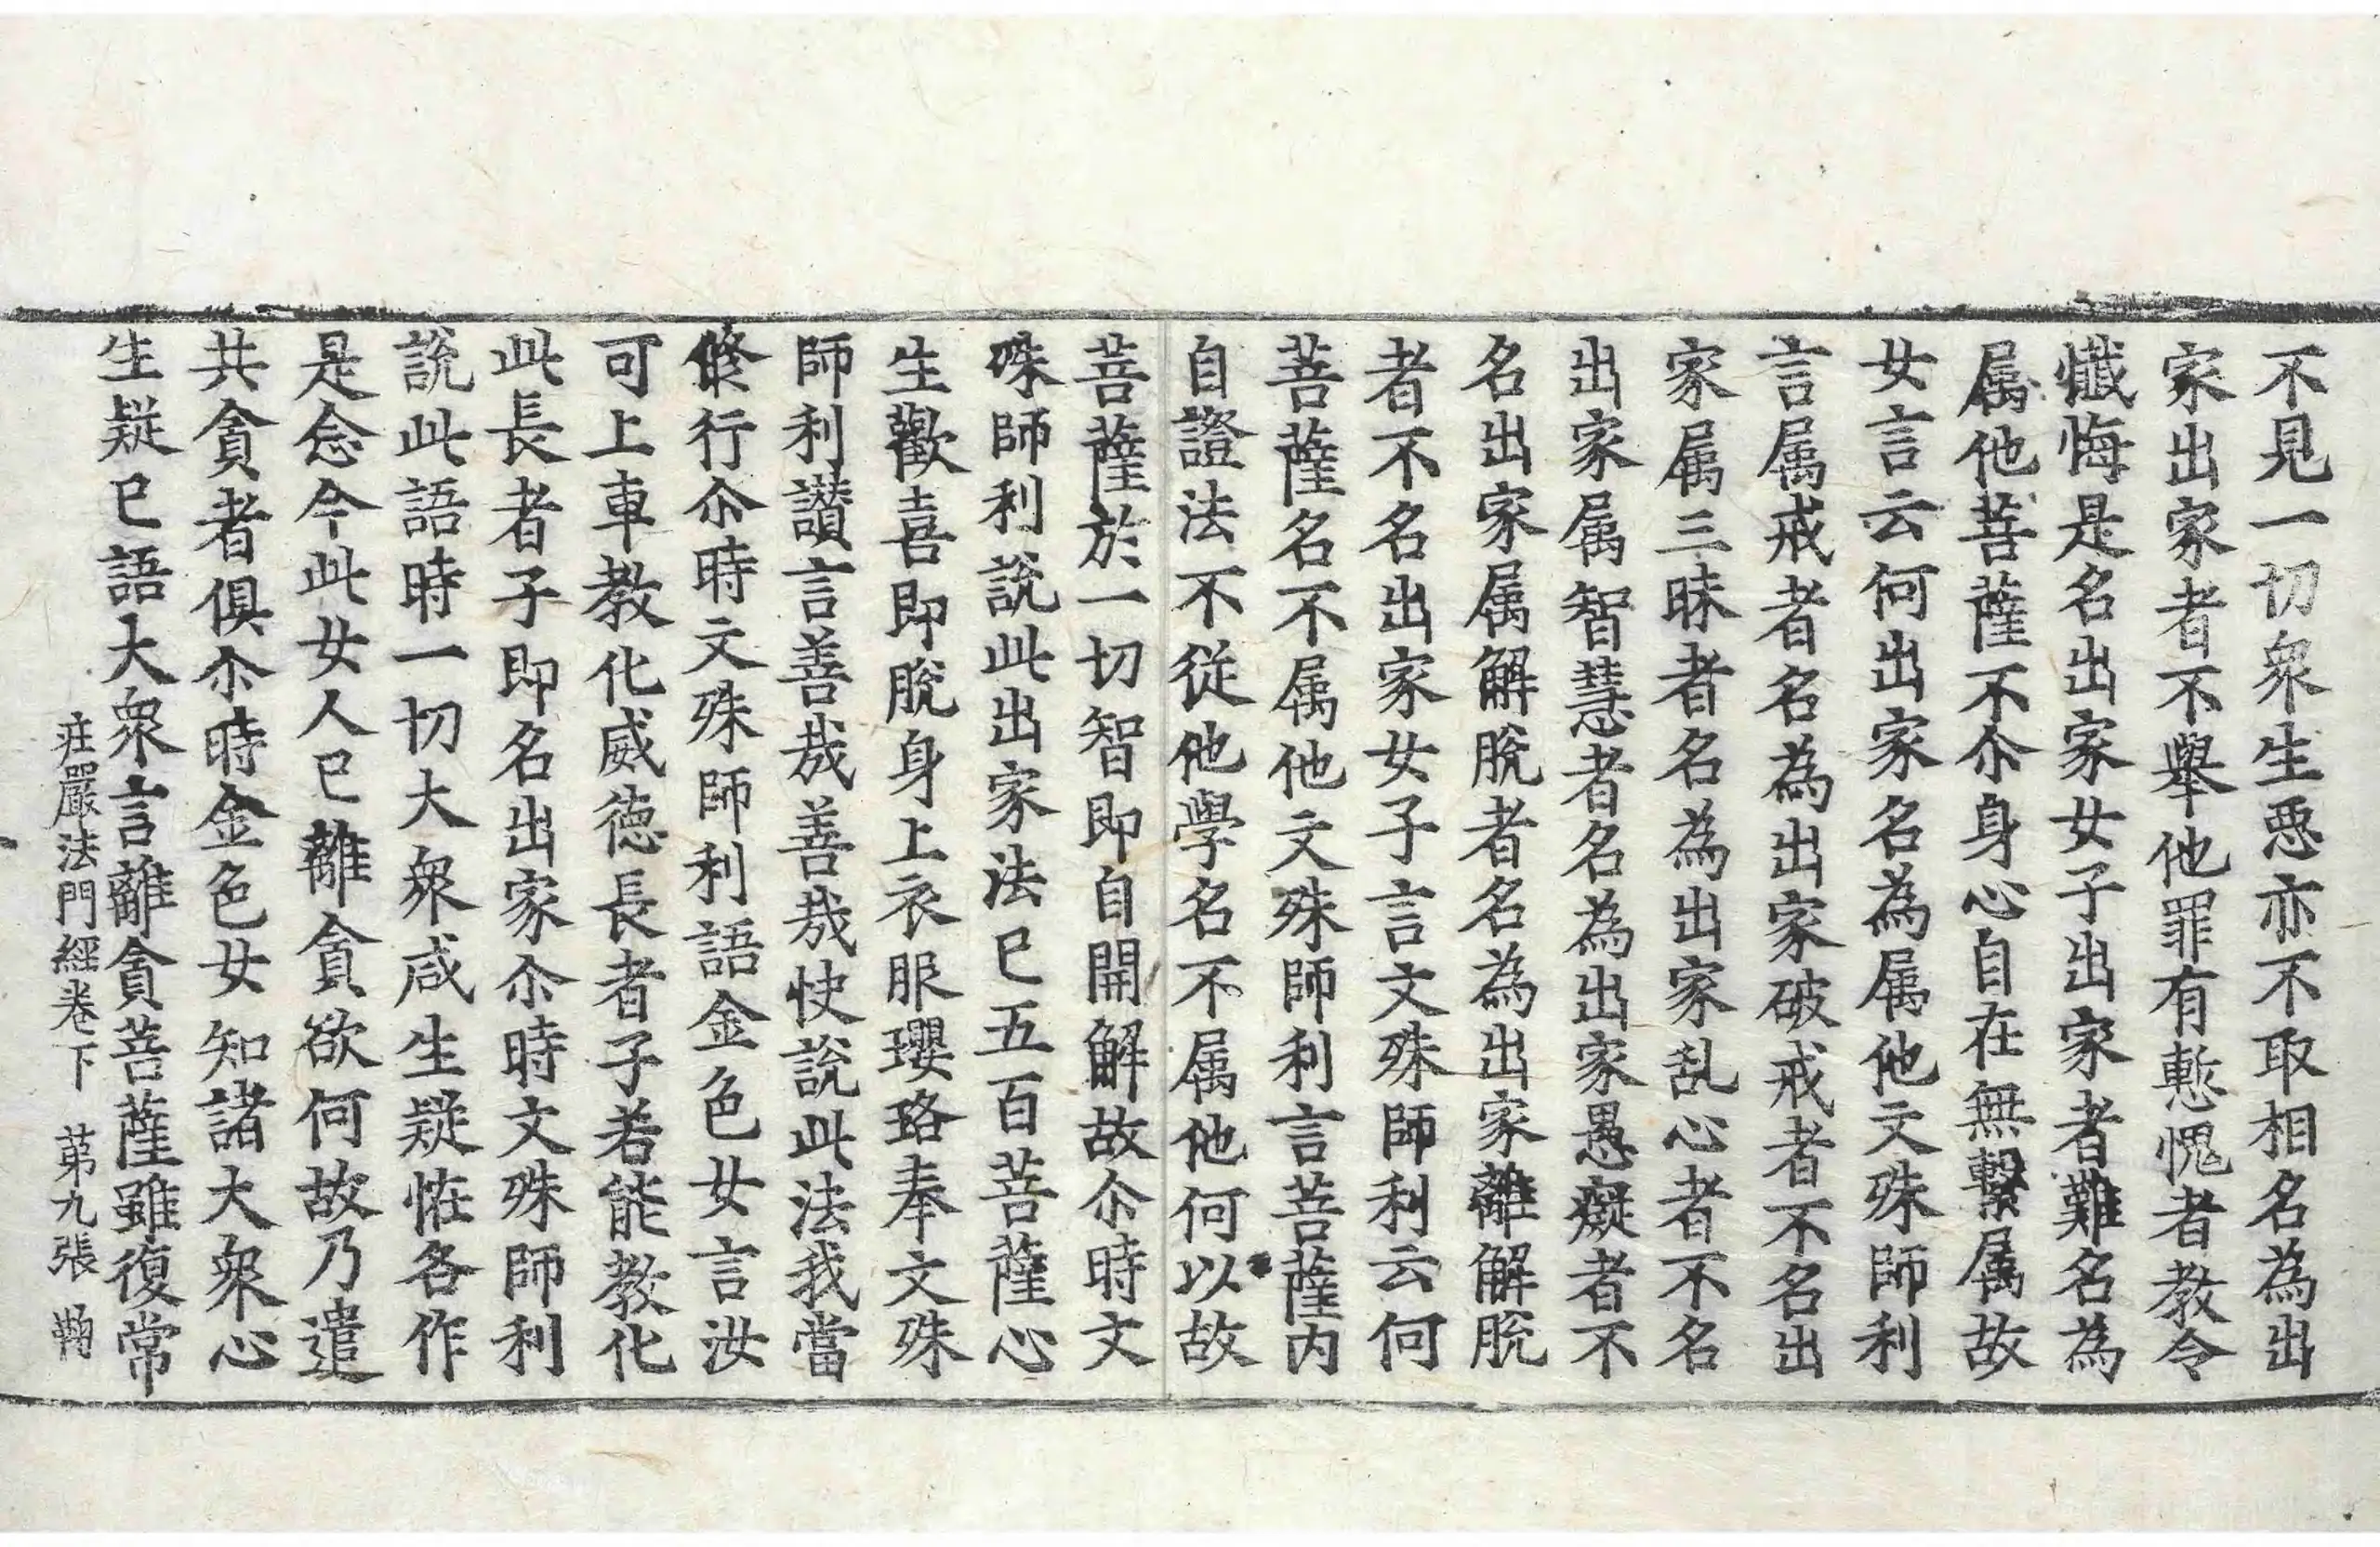 不見一切衆生惡亦不取相名為出
家出家者不舉他罪有慙愧者教令
懺悔是名出家女子出家者難名為
属他菩薩不尒身心自在無繫属故
女言云何出家名為属他文殊師利
言属戒者名為出家破戒者不名出
家属三昧者名為出家乱心者不名
出家属智慧者名為出家愚癡者不
名出家属解脫者名為出家離解脫
者不名出家女子言文殊師利云何
菩薩名不属他文殊師利言菩薩内
自證法不從他學名不属他何以故
菩薩於一切智即自開解故尒時文
殊師利說此出家法已五百菩薩心
生歡喜即脫身上衣服瓔珞奉文殊
師利讃言善哉善哉快說此法我當
修行尒時文殊師利語金色女言汝
可上車教化威德長者子若能教化
此長者子即名出家尒時文殊師利
說此語時一切大衆咸生疑恠各作
是念今此女人已離貪欲何故乃遣
共貪者俱尒時金色女知諸大衆心
生疑已語大衆言離貪菩薩雖復常
庄嚴法門經卷下 苐九張 鞠